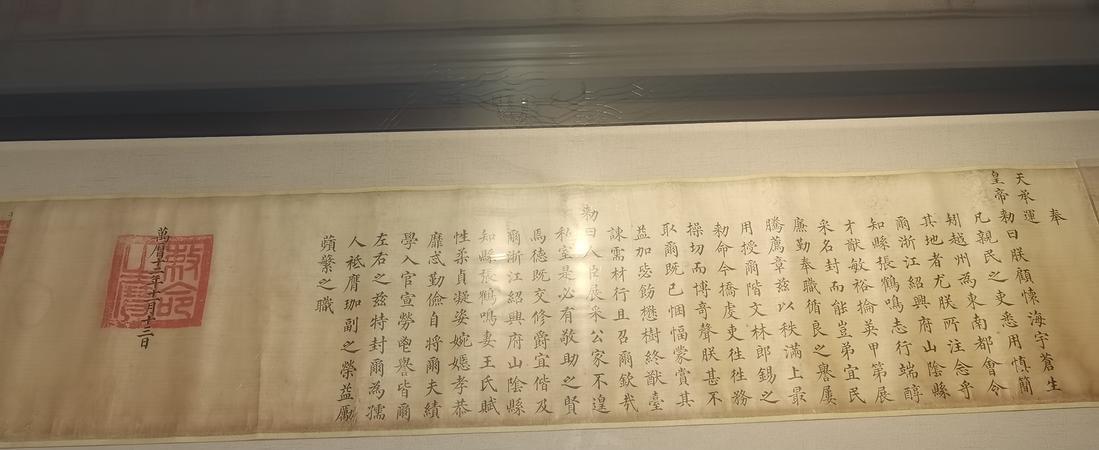 奉
天承運
皇帝勑曰朕顧懷海宇蒼生
凡親民之吏悉用慎簡
矧越州為東南都會令
其地者尤朕所注念乎
爾浙江紹興府山陰縣
知縣張鶴鳴志行端醇
才猷敏裕掄英甲第展
采名封而能豈弟宜民
廉勤奉職循良之譽屢
騰薦章茲以秩滿上最
用授爾階文林郎錫之
勑命今撟虔吏徃徃務
操切而博奇聲朕甚不
取爾既已悃愊蒙賞其
益加毖飭懋樹終猷臺
諫需材行且召爾欽哉
勑曰人臣展采公家不遑
私室是必有敬助之賢
焉德既交修爵宜偕及
爾浙江紹興府山陰縣
知縣張鶴鳴妻王氏賦
性柔貞凝姿婉嫕孝恭
靡忒勤儉自將爾夫績
學入官宣勞邑譽皆爾
左右之茲特封爾為孺
人祗膺珈副之榮益勵
蘋蘩之職
萬曆十二年十一月十二日
勑命之寶